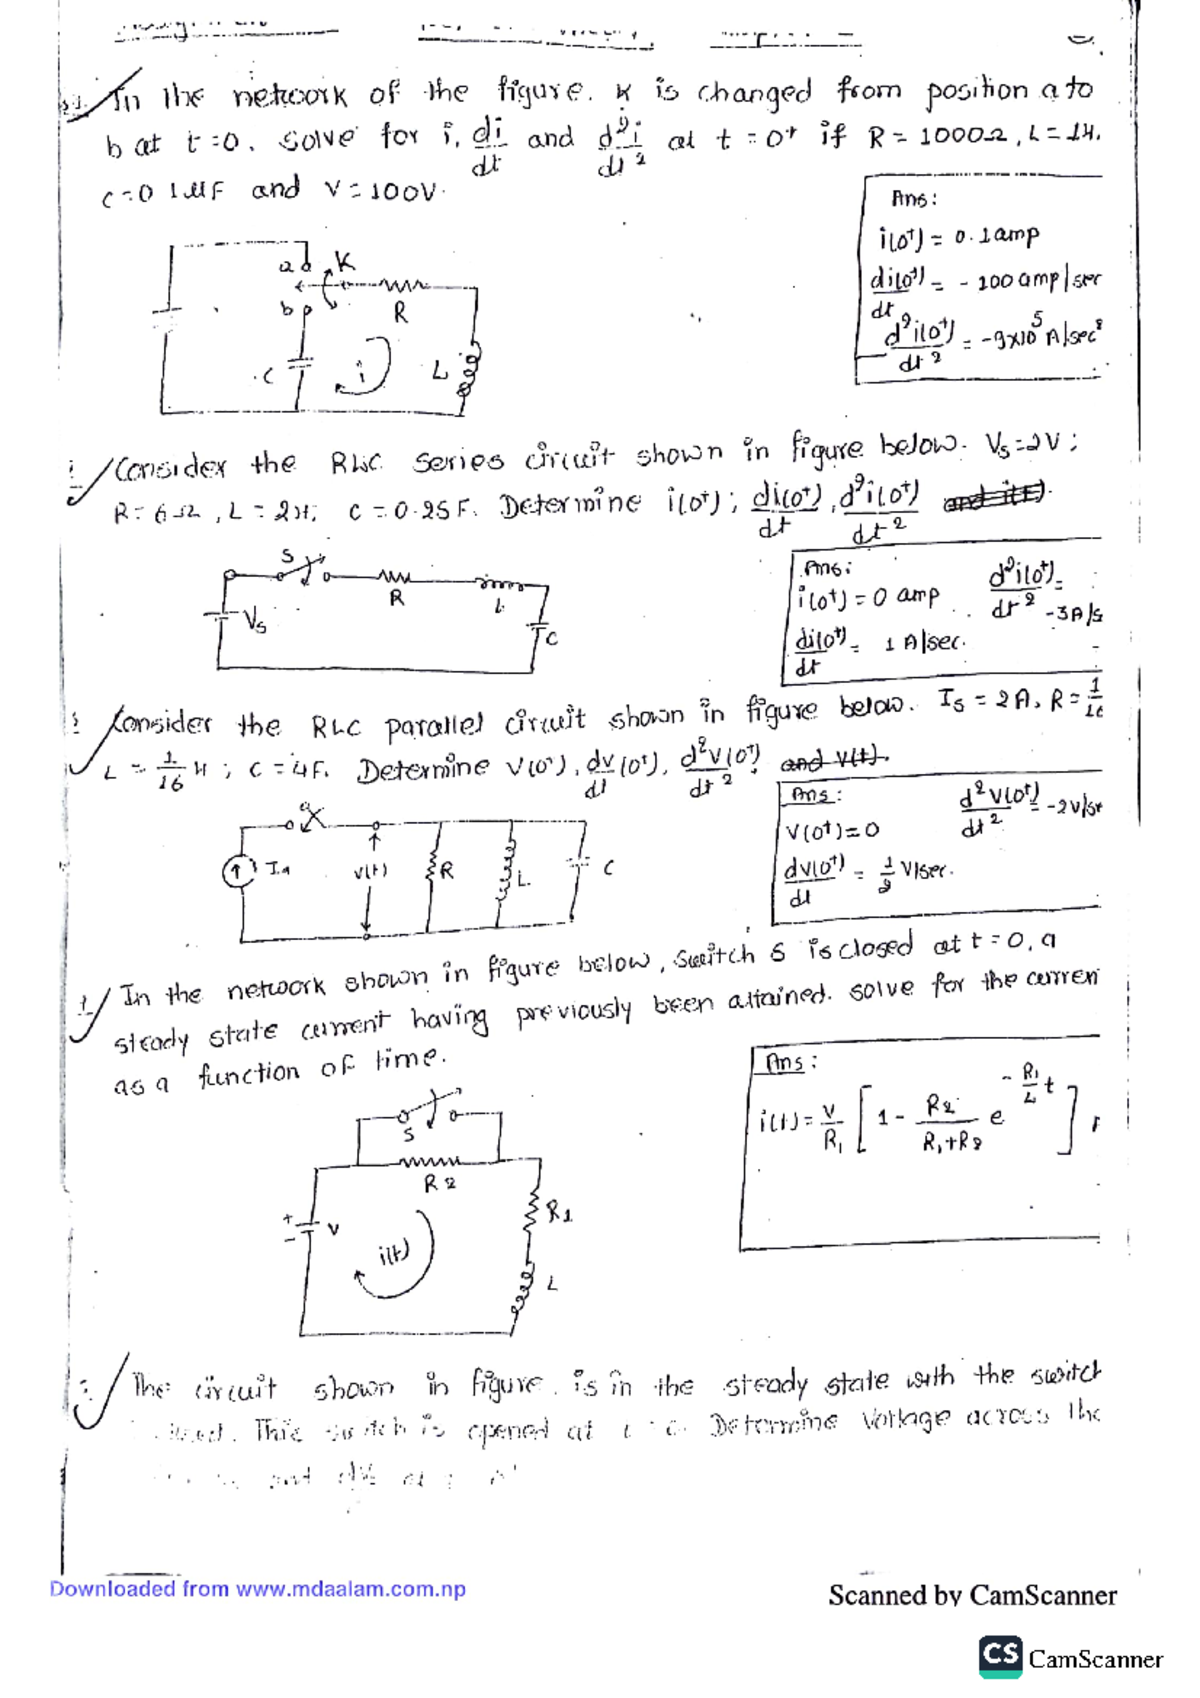 In the network of the figure. K is changed from position a to
b at t=0. solve for i, di/dt and d²i/dt² at t = 0⁺ if R = 1000Ω, L = 1H.
C=0.1μF and V=100V.
Ans:
i(0⁺) = 0.1amp
di(0⁺)/dt = -100 amp/sec
d²i(0⁺)/dt² = -9x10⁵ A/sec²
a K
b R
C i L
Consider the RLC series circuit shown in figure below. Vs=2V;
R=6Ω, L=2H; C=0.25F. Determine i(0⁺); di(0⁺)/dt, d²i(0⁺)/dt² and i(t).
Ans:
i(0⁺) = 0 amp d²i(0⁺)/dt² = -3A/s
di(0⁺)/dt = 1 A/sec.
S
R L
Vs C
Consider the RLC parallel circuit shown in figure below. Is = 2A, R = 1/16
L = 1/16 H; C = 4F. Determine V(0⁺), dv/dt(0⁺), d²V(0⁺)/dt² and V(t).
Ans: d²V(0⁺)/dt² = -2V/s
V(0⁺)=0
dV(0⁺)/dt = 1/2 V/sec.
v(t) R L C
In the network shown in figure below, switch S is closed at t=0, a
steady state current having previously been attained. solve for the curren
as a function of time.
Ans:
i(t) = V/R₁ [1 - R2/(R₁+R2) e^(-R₁/L t)]
S
R2
+
- V
R1
i(t)
L
The circuit shown in figure. is in the steady state with the switch
This switch is opened at Determine Voltage across the
and
Downloaded from www.mdaalam.com.np
Scanned by CamScanner
CS CamScanner